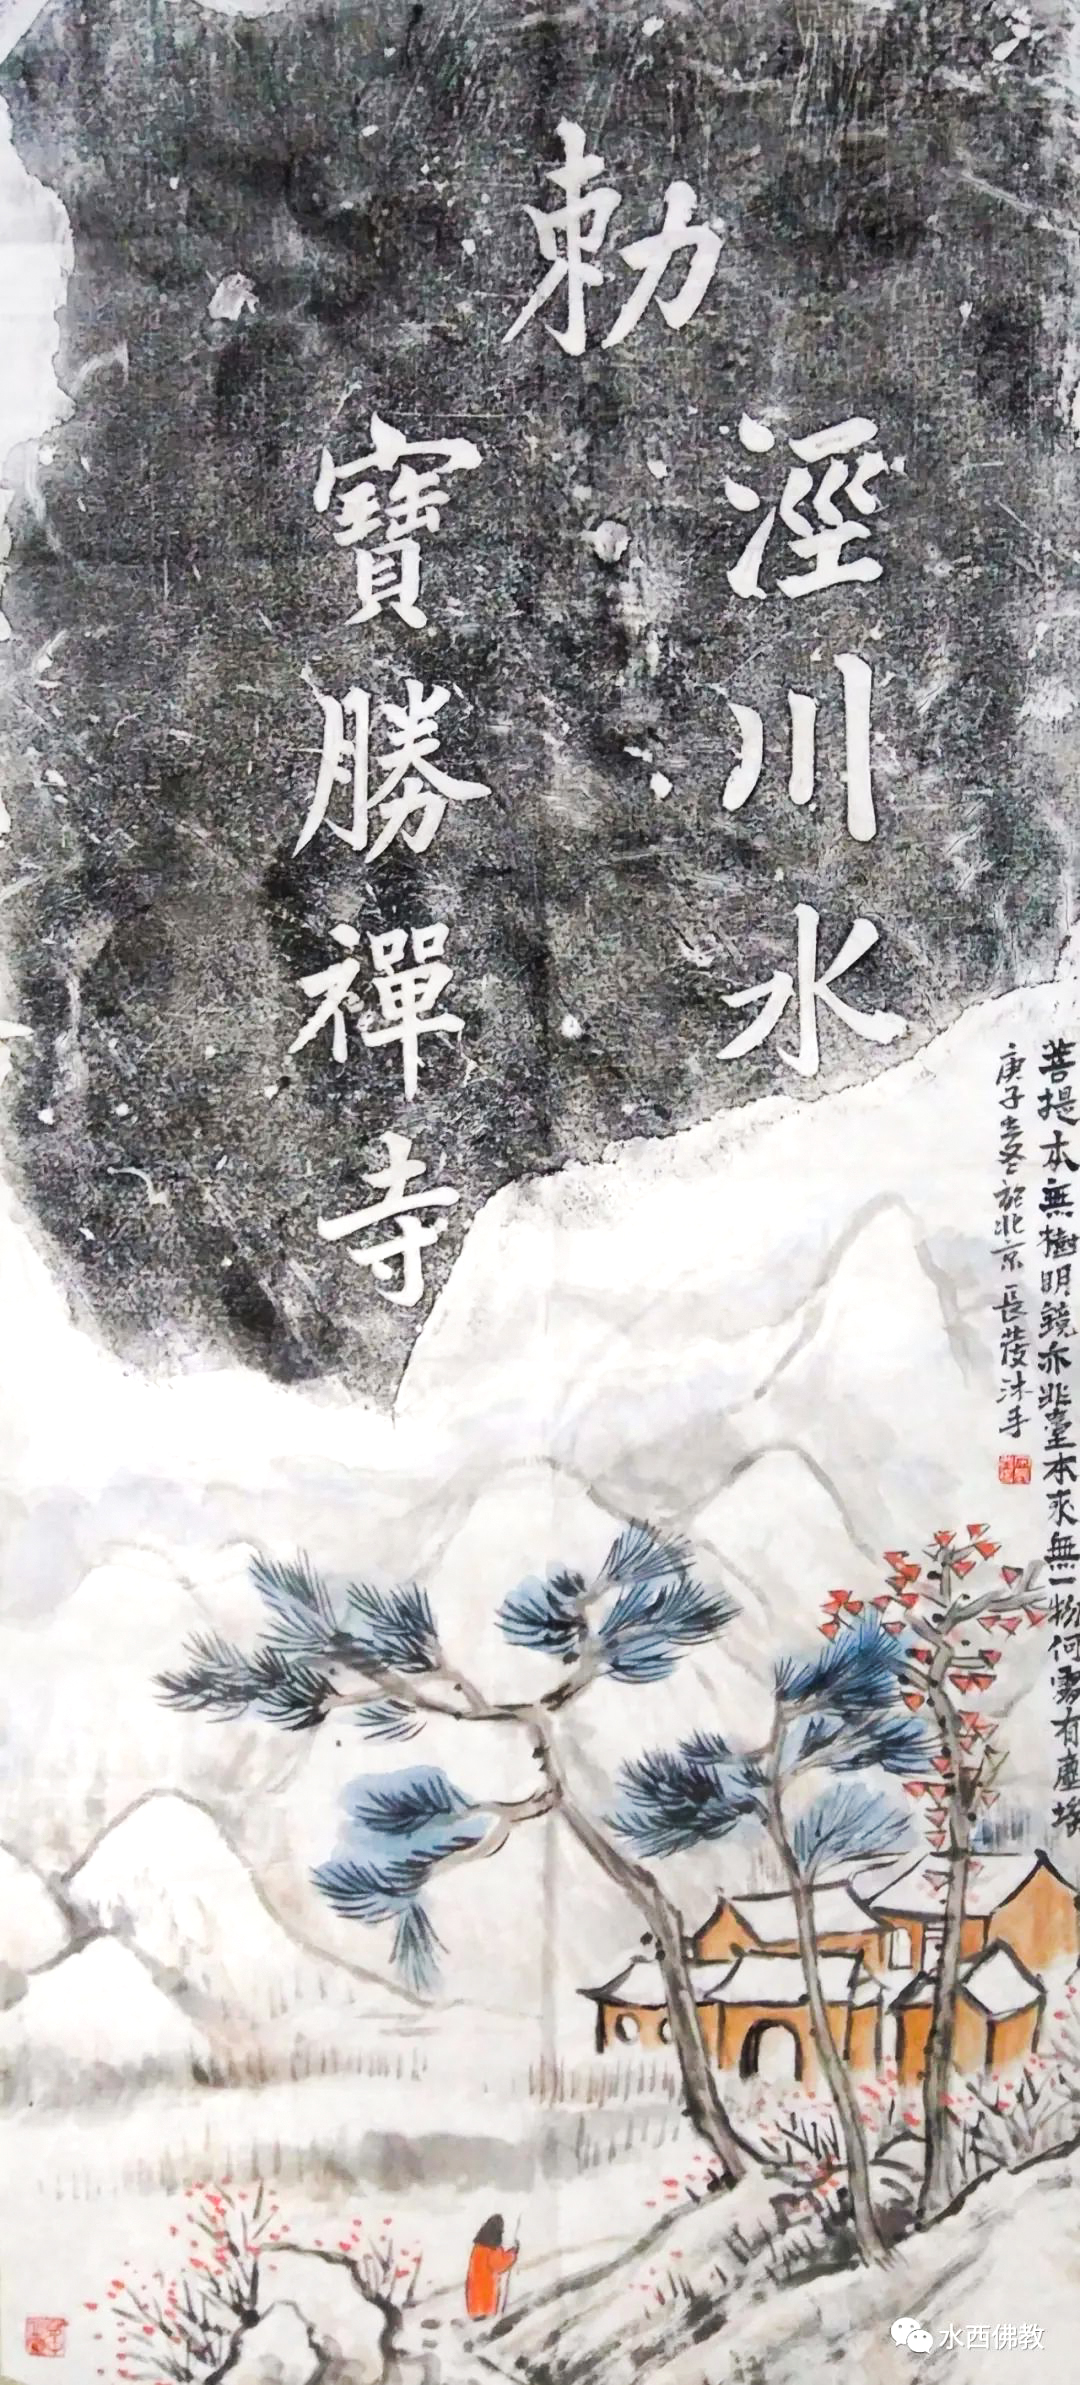 勅
涇川水
寶勝禪寺
菩提本無樹明鏡亦非臺本來無一物何處有塵埃
庚子冬於北京長陵沐手
水西佛教